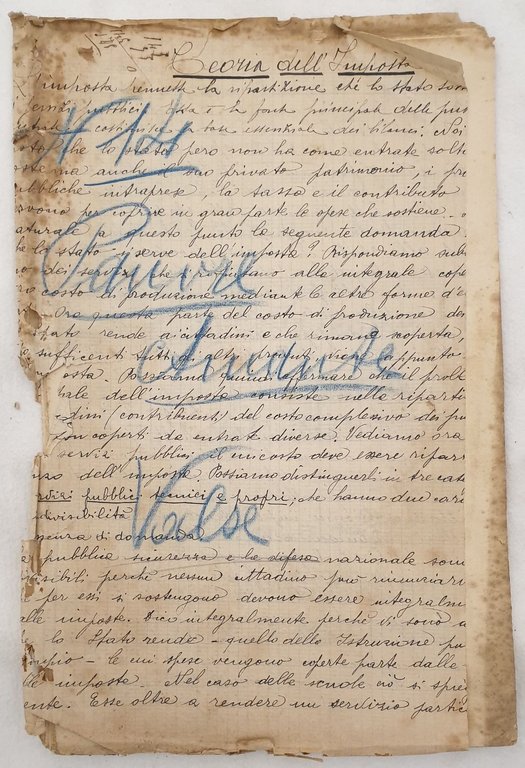 Teoria dell'Imposta
imposta permette la ripartizione che lo stato
pubblici. Essa è la fonte principale delle
costituisce la base essenziale dei bilanci. Noi
che lo stato però non ha come entrate solt
ma anche il suo privato patrimonio, i pr
bbliche intraprese, la tassa e il contributo
vono per coprire in gran parte le spese che sostiene.
aturale a questo punto la seguente domanda.
he lo stato si serve dell'imposta? Rispondiamo sub
dei servizi che alla integrale cope
costo di produzione mediante le altre forme d'e
Ora questa parte del costo di produzione dei
stato rende ai cittadini e che rimane scoperta,
sufficenti tutti gli altri appunto
osta. Possiamo quindi affermare che il probl
dell'imposta consiste nella riparti
dini (contribuenti) del costo complessivo dei pu
non coperti da entrate diverse. Vediamo ora
servizi pubblici il cui costo deve essere ripar
zzo dell'imposta. Possiamo distinguerli in tre cate
rvizi pubblici tecnici e propri, che hanno due cara
divisibilità
senza di domanda
pubblica sicurezza e la difesa nazionale son
isibili perchè nessun cittadino può rinunciar
per essi si sostengono devono essere integralm
alle imposte. Dico integralmente perchè vi sono a
lo Stato rende - quello della Istruzione pu
mpio - le cui spese vengono coperte parte dalle
lle imposte. Nel caso delle scuole ciò si spie
ente. Esse oltre a rendere un servizio partic
Pavore
Andante
Valse